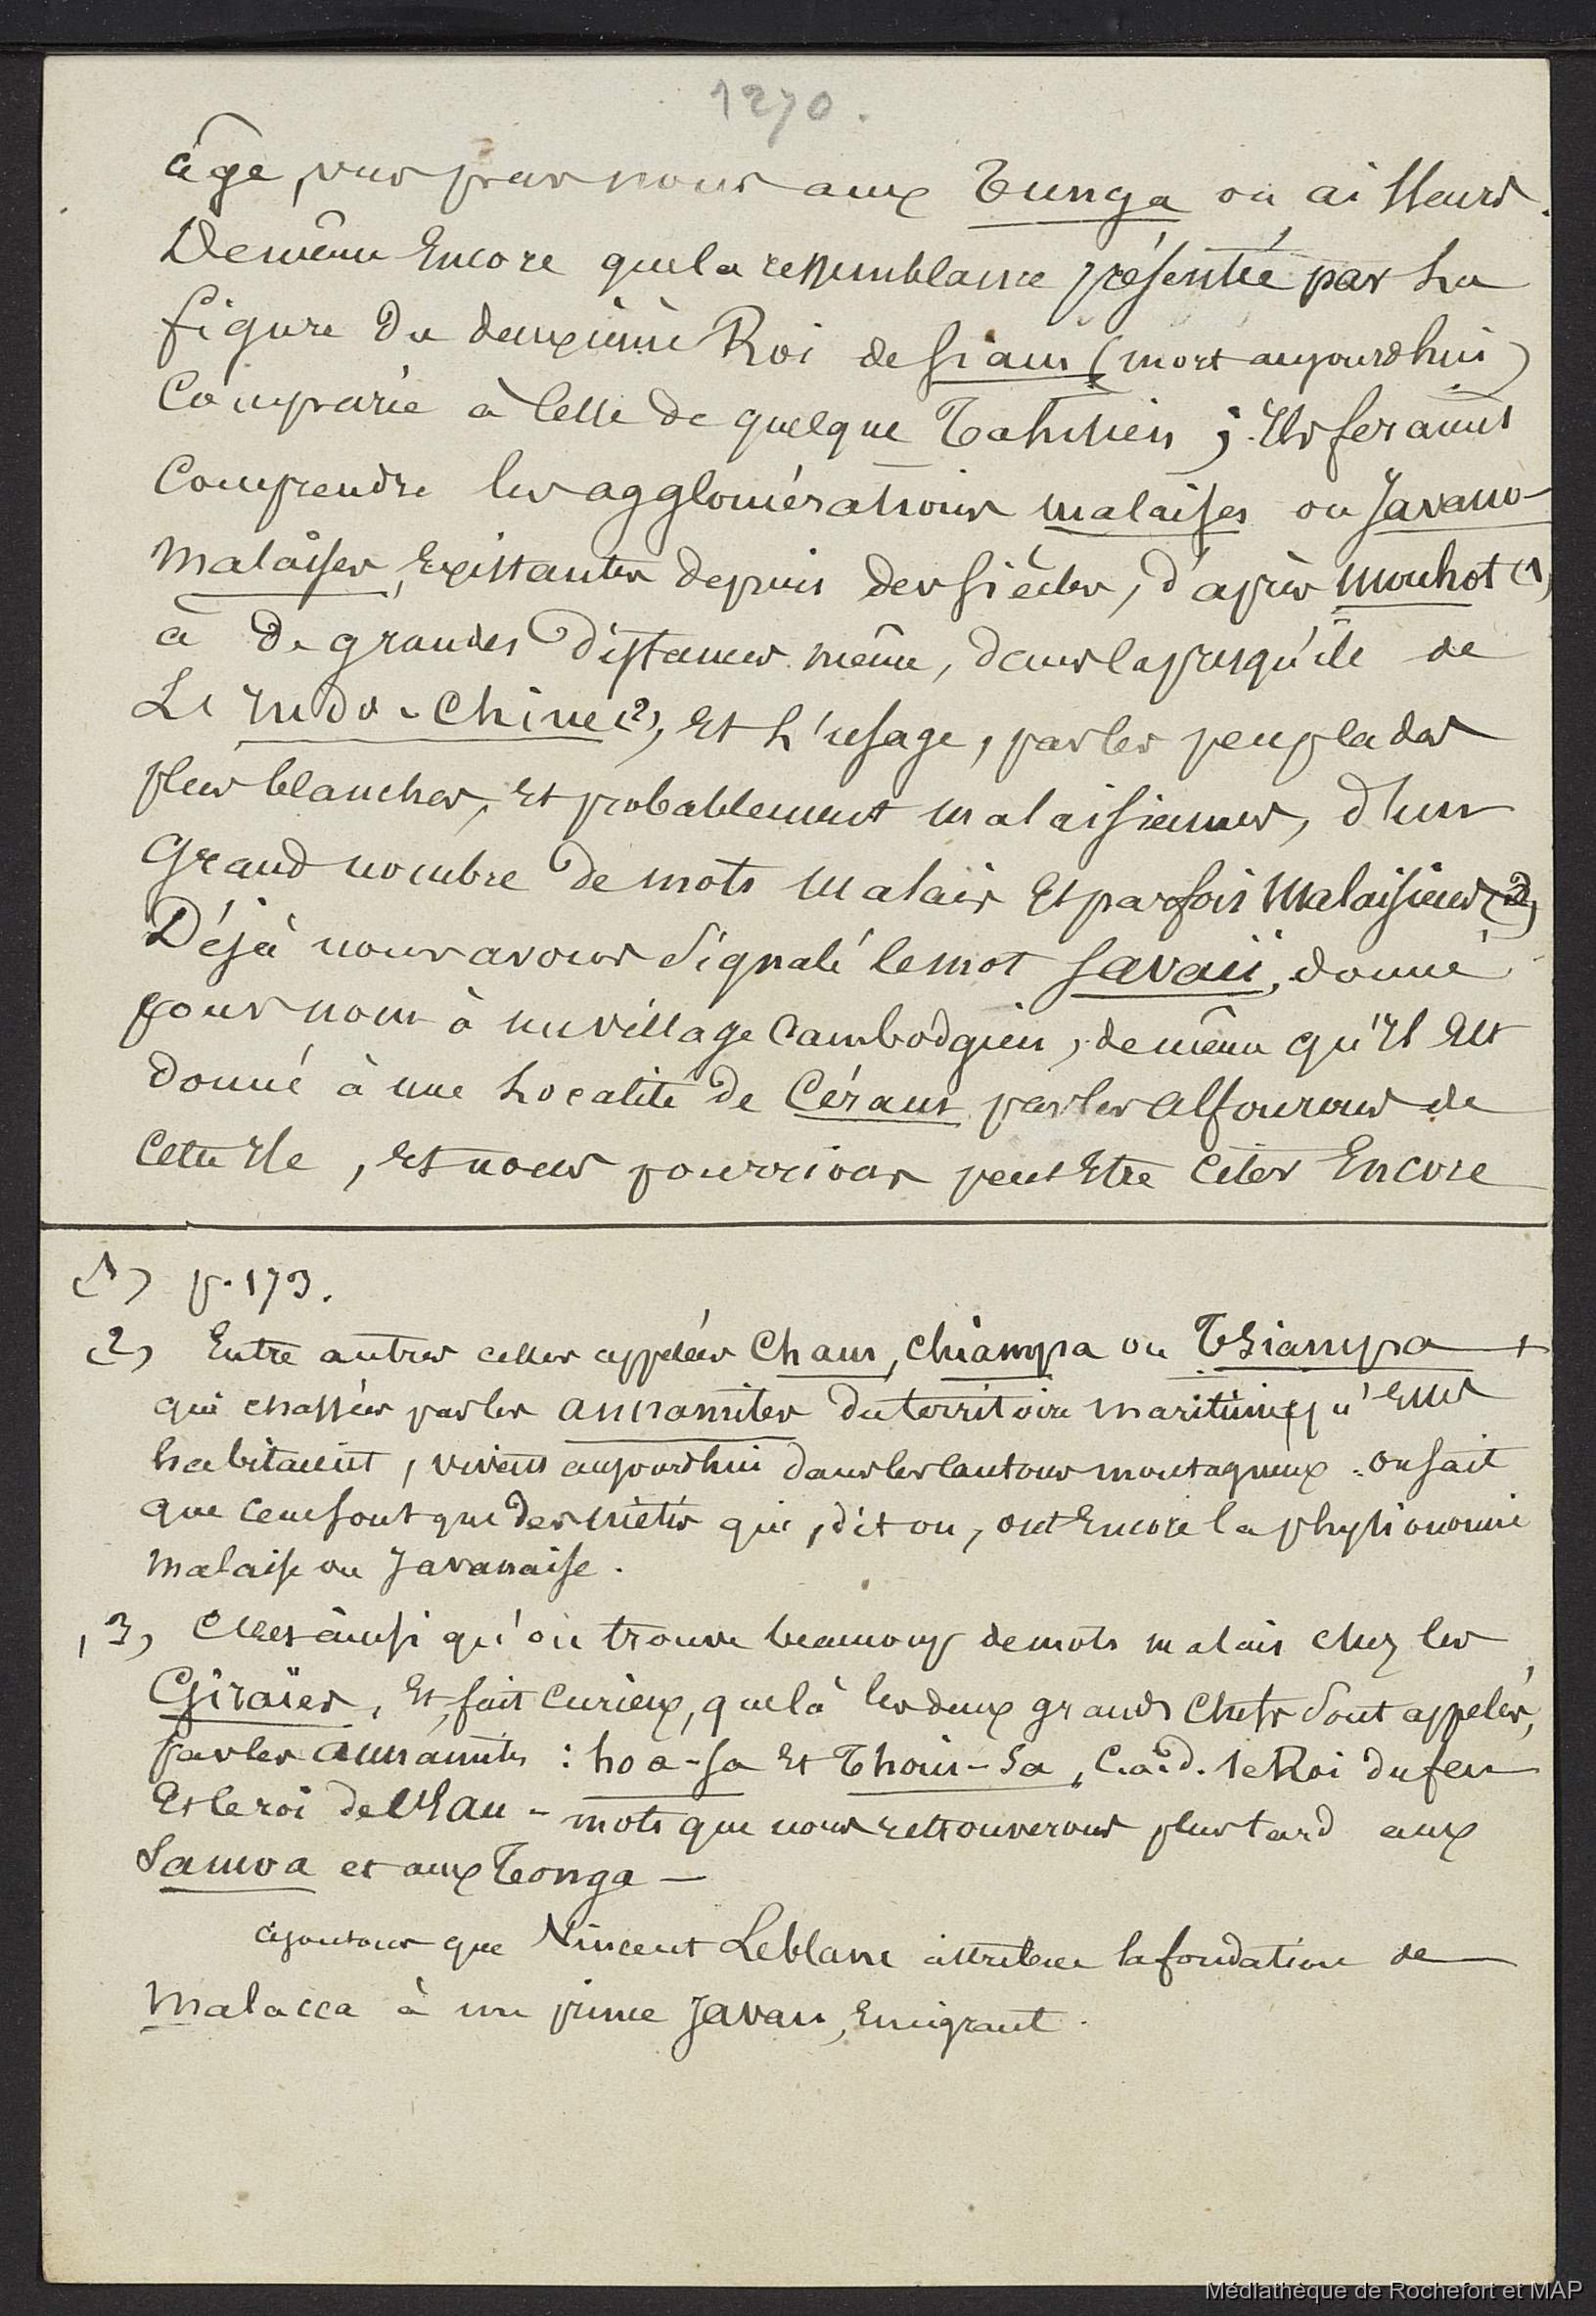 1270.
âge, vus par nous aux Tunga ou ailleurs.
De même Encore que la ressemblance présentée par La
figure du deuxième Roi de Siam (mort aujourdhui)
Comparée à Celle de quelque Tahitien ; Ils feraient
Comprendre les agglomérations malaises ou Javano-
Malaises, Existantes depuis des siècles, d'après Mouhot (1)
à de grandes distances même, dans la presqu'île de
L'Indo-Chine (2), Et L'usage, par les peuplades
plus blanches, Et probablement malaisiennes, d'un
Grand nombre de mots Malais Et parfois Malaisiens (3)
Déjà nous avons Signalé le mot Savaii, donné
pour nom à un village Cambodgien, de même qu'Il Est
donné à une Localité de Céram par les alfourous de
Cette Ile, Et nous pourrions peut Etre Citer Encore
(1) p. 173.
(2) Entre autres celles appelées Cham, Chiampa ou Tsiampa +
qui chassées par les annamites du territoire maritime qu'Elles
habitaient, vivent aujourdhui dans les cantons montagneux. On sait
que ce ne sont que des métis qui, dit on, ont Encore la physionomie
Malaise ou Javanaise.
(3) C'est ainsi qu'on trouve beaucoup de mots malais chez les
Giraïes, Et, fait curieux, que là les deux grands Chefs sont appelés,
par les annamites : hoa-sa Et Thoui-Sa, C.à.d. le Roi du feu
Et le roi de l'Eau - mots que nous retrouverons plus tard aux
Samoa et aux Tonga —
ajoutons que Vincent Leblanc attribue la fondation de
Malacca à un prince Javan, Emigrant.
Médiathèque de Rochefort et MAP